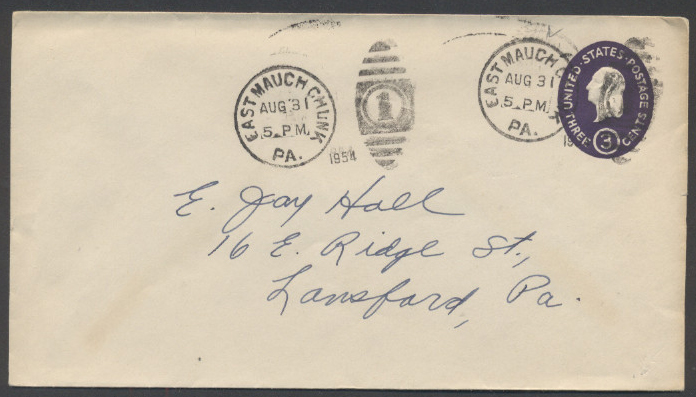 EAST MAUCH CHUNK
AUG 31
5 P.M.
PA.
1954
1
EAST MAUCH
AUG 31
5 P.M.
PA.
UNITED STATES POSTAGE
THREE 3 CENTS
E. Jay Hall
16 E. Ridge St.,
Lansford, Pa.